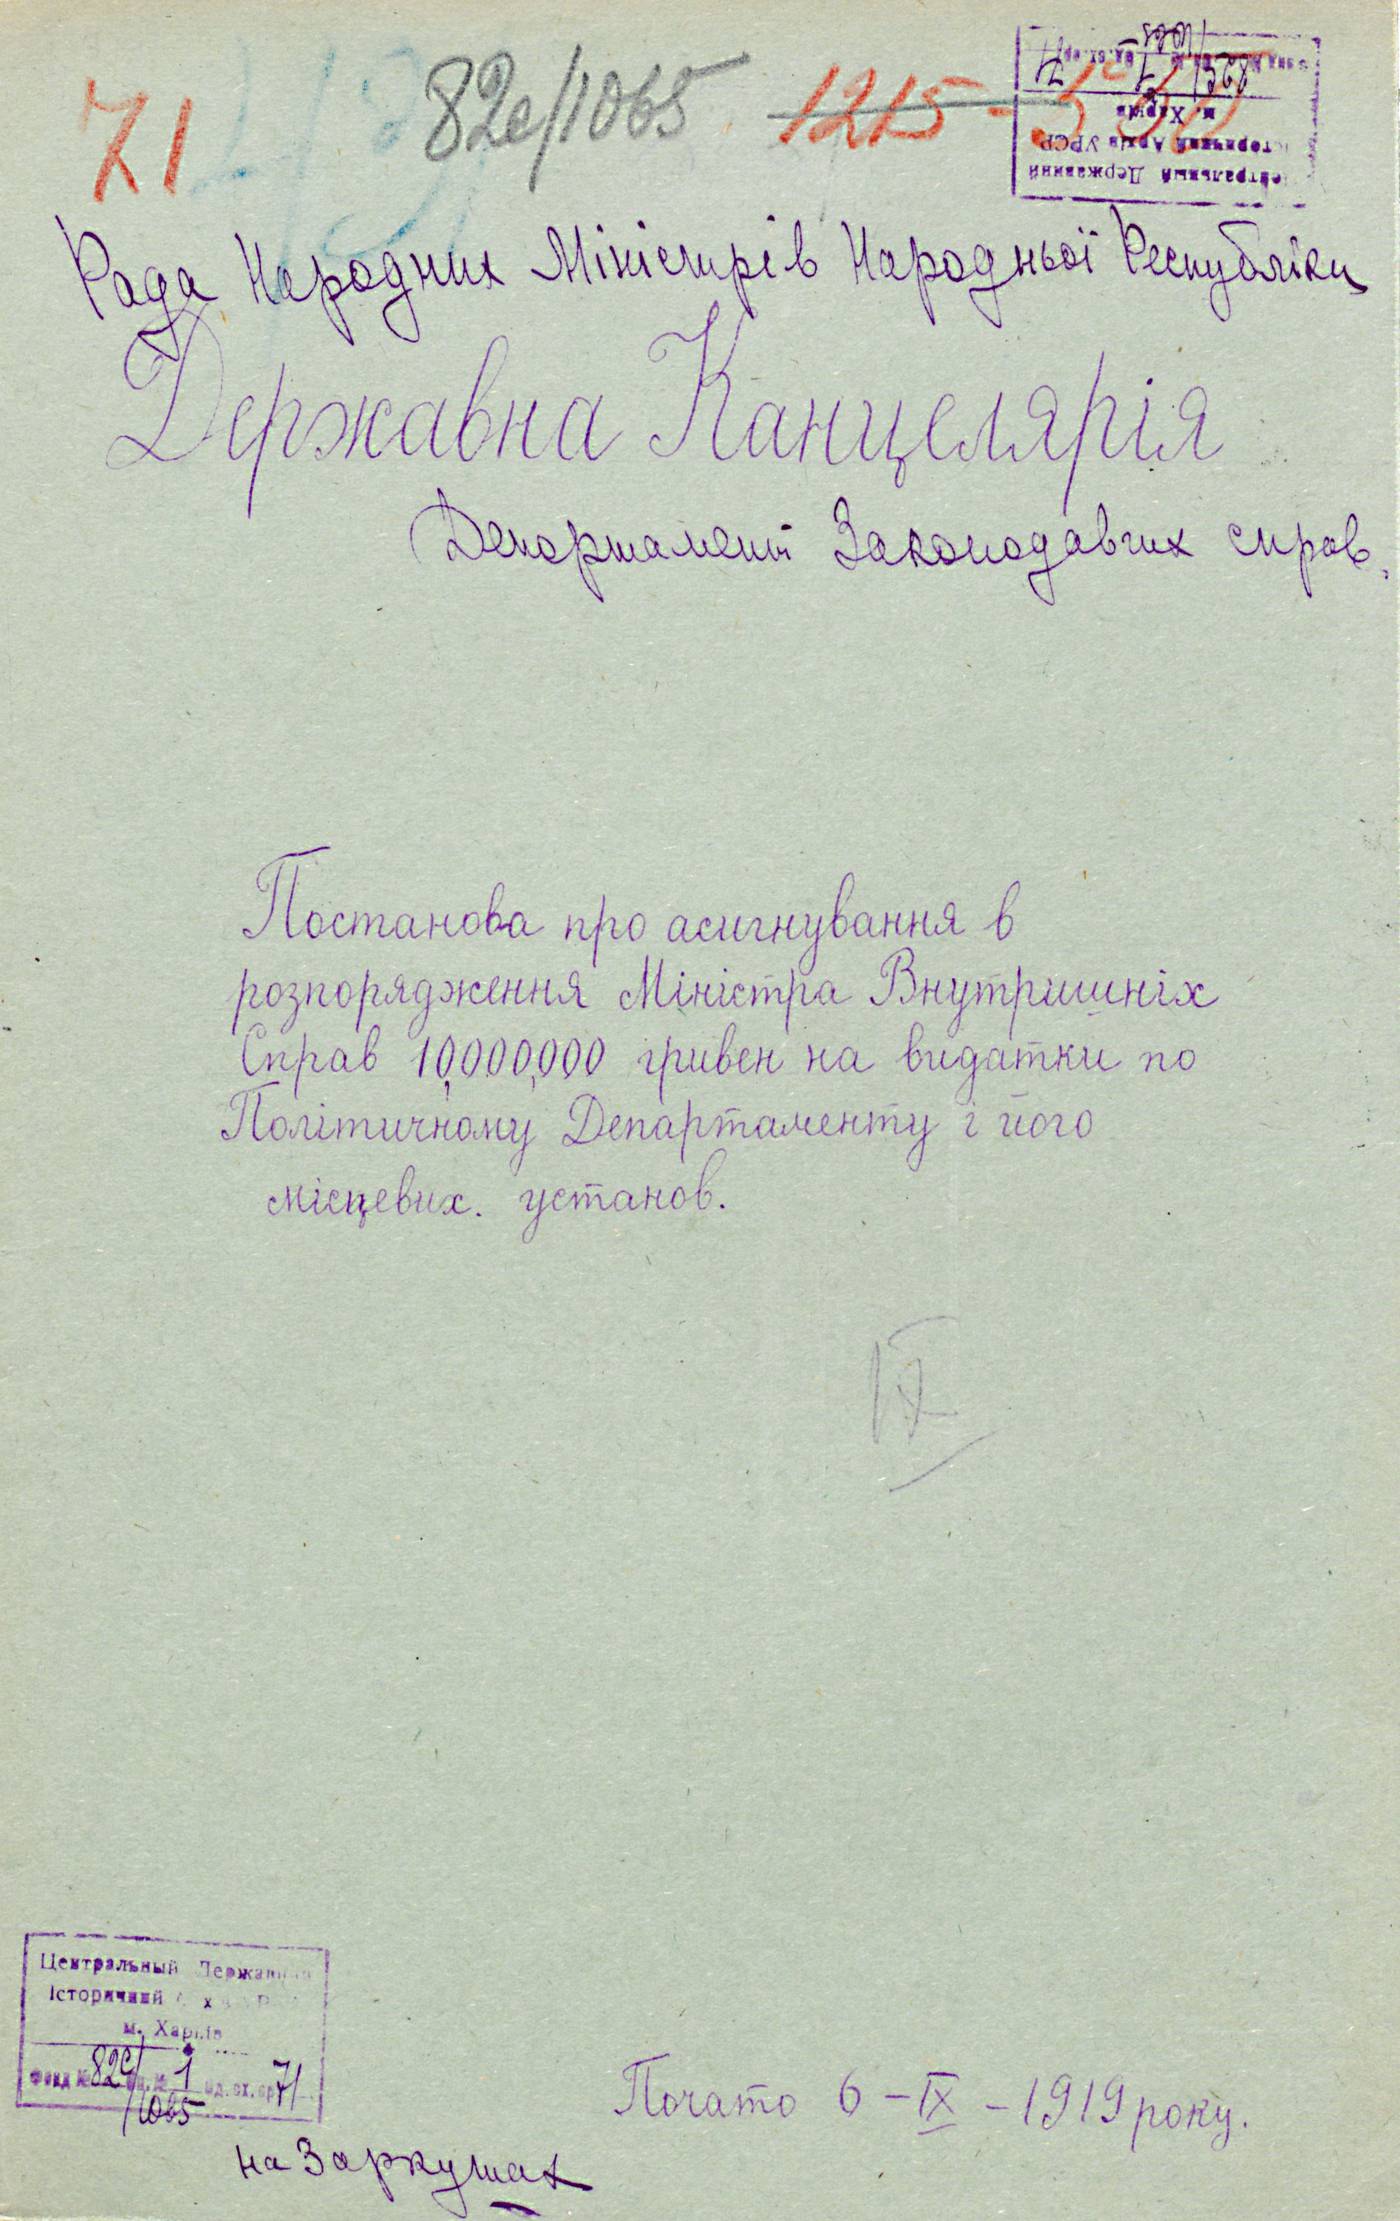 71 82с/1065 1215-
Центральный Державний
Історичний Архів УРСР
м. Харків
Фонд № 82с/1065 оп. № 1 од. зх. ар. 71
Рада Народних Міністрів Народньої Республіки
Державна Канцелярія
Департамент Законодавчих справ.
Постанова про асигнування в
розпорядження Міністра Внутришніх
Справ 10,000,000 гривен на видатки по
Політичному Департаменту і його
місцевих. установ.
IX
Центральный Державний
Історичний
м. Харків
Фонд № 82с/1065 оп. № 1 од. зх. ар. 71
Почато 6 - IX - 1919 року.
на 3 аркушах